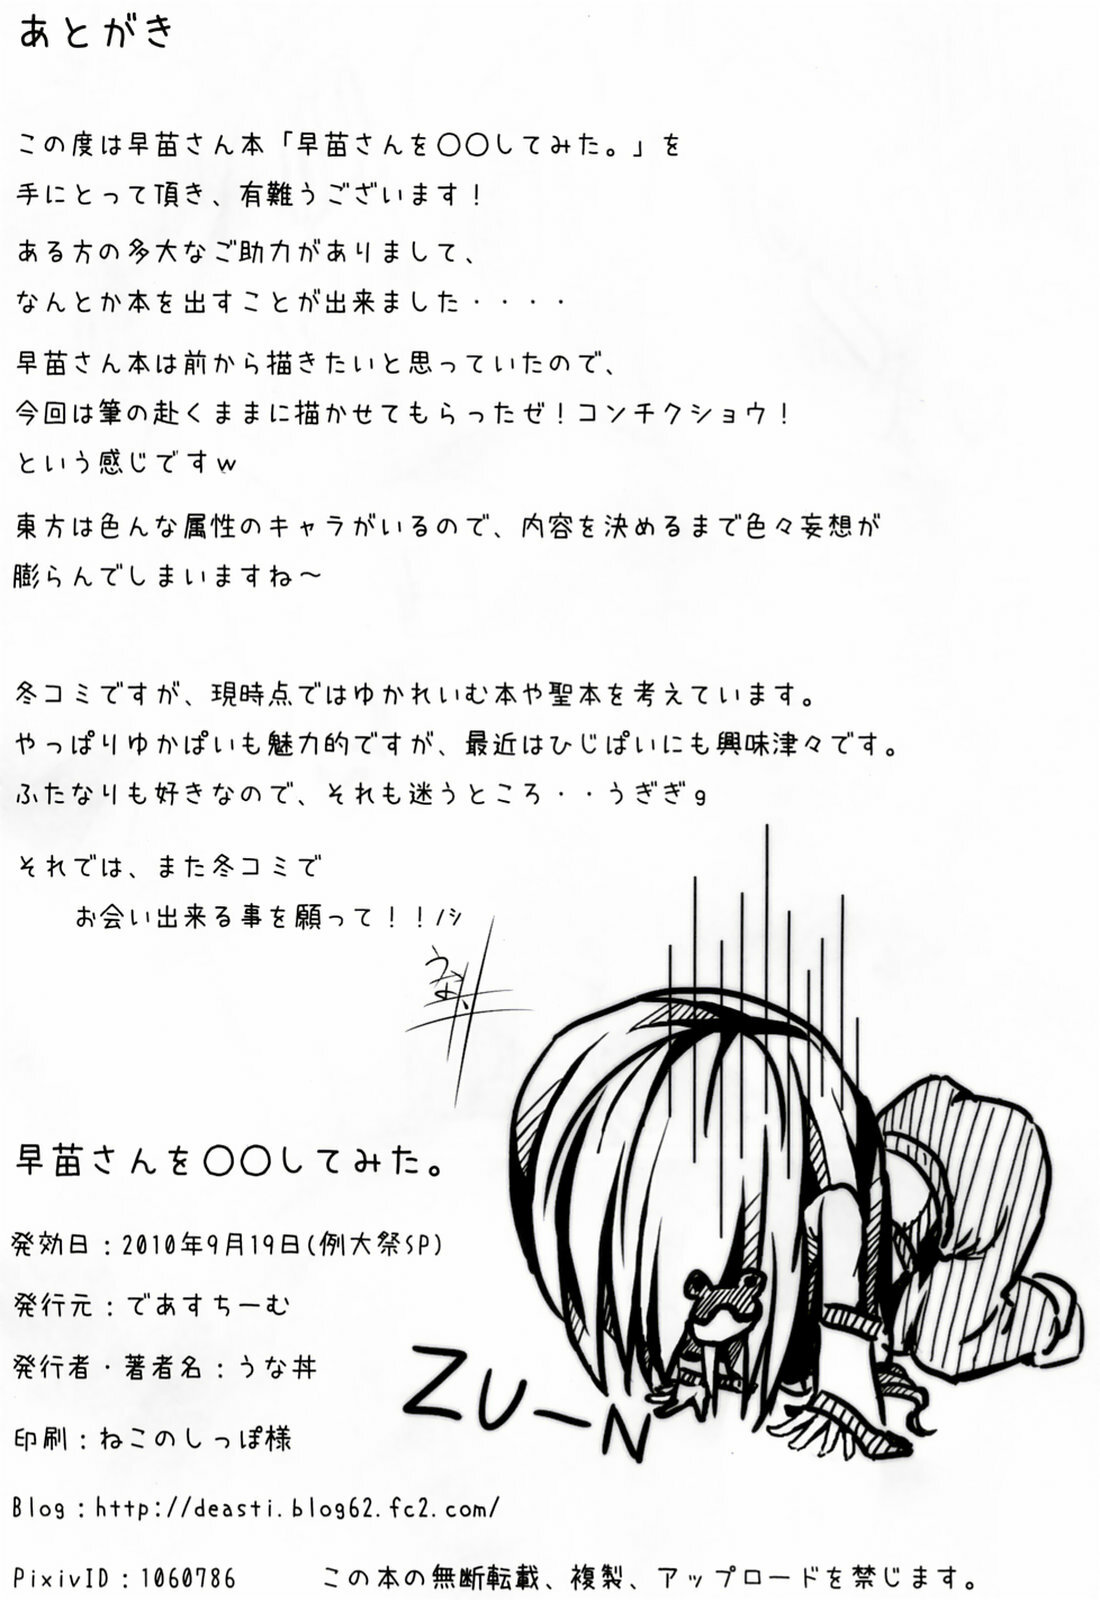 あとがき
この度は早苗さん本「早苗さんを〇〇してみた。」を
手にとって頂き、有難うございます！
ある方の多大なご助力がありまして、
なんとか本を出すことが出来ました・・・・
早苗さん本は前から描きたいと思っていたので、
今回は筆の赴くままに描かせてもらったゼ！コンチクショウ！
という感じですｗ
東方は色んな属性のキャラがいるので、内容を決めるまで色々妄想が
膨らんでしまいますね～
冬コミですが、現時点ではゆかれいむ本や聖本を考えています。
やっぱりゆかぱいも魅力的ですが、最近はひじぱいにも興味津々です。
ふたなりも好きなので、それも迷うところ・・うぎぎｇ
それでは、また冬コミで
お会い出来る事を願って！！ﾉｼ
早苗さんを〇〇してみた。
発効日：2010年9月19日(例大祭SP)
発行元：であすちーむ
発行者・著者名：うな丼
印刷：ねこのしっぽ様
Blog：http://deasti.blog62.fc2.com/
PixivID：1060786 この本の無断転載、複製、アップロードを禁じます。
ZU-N